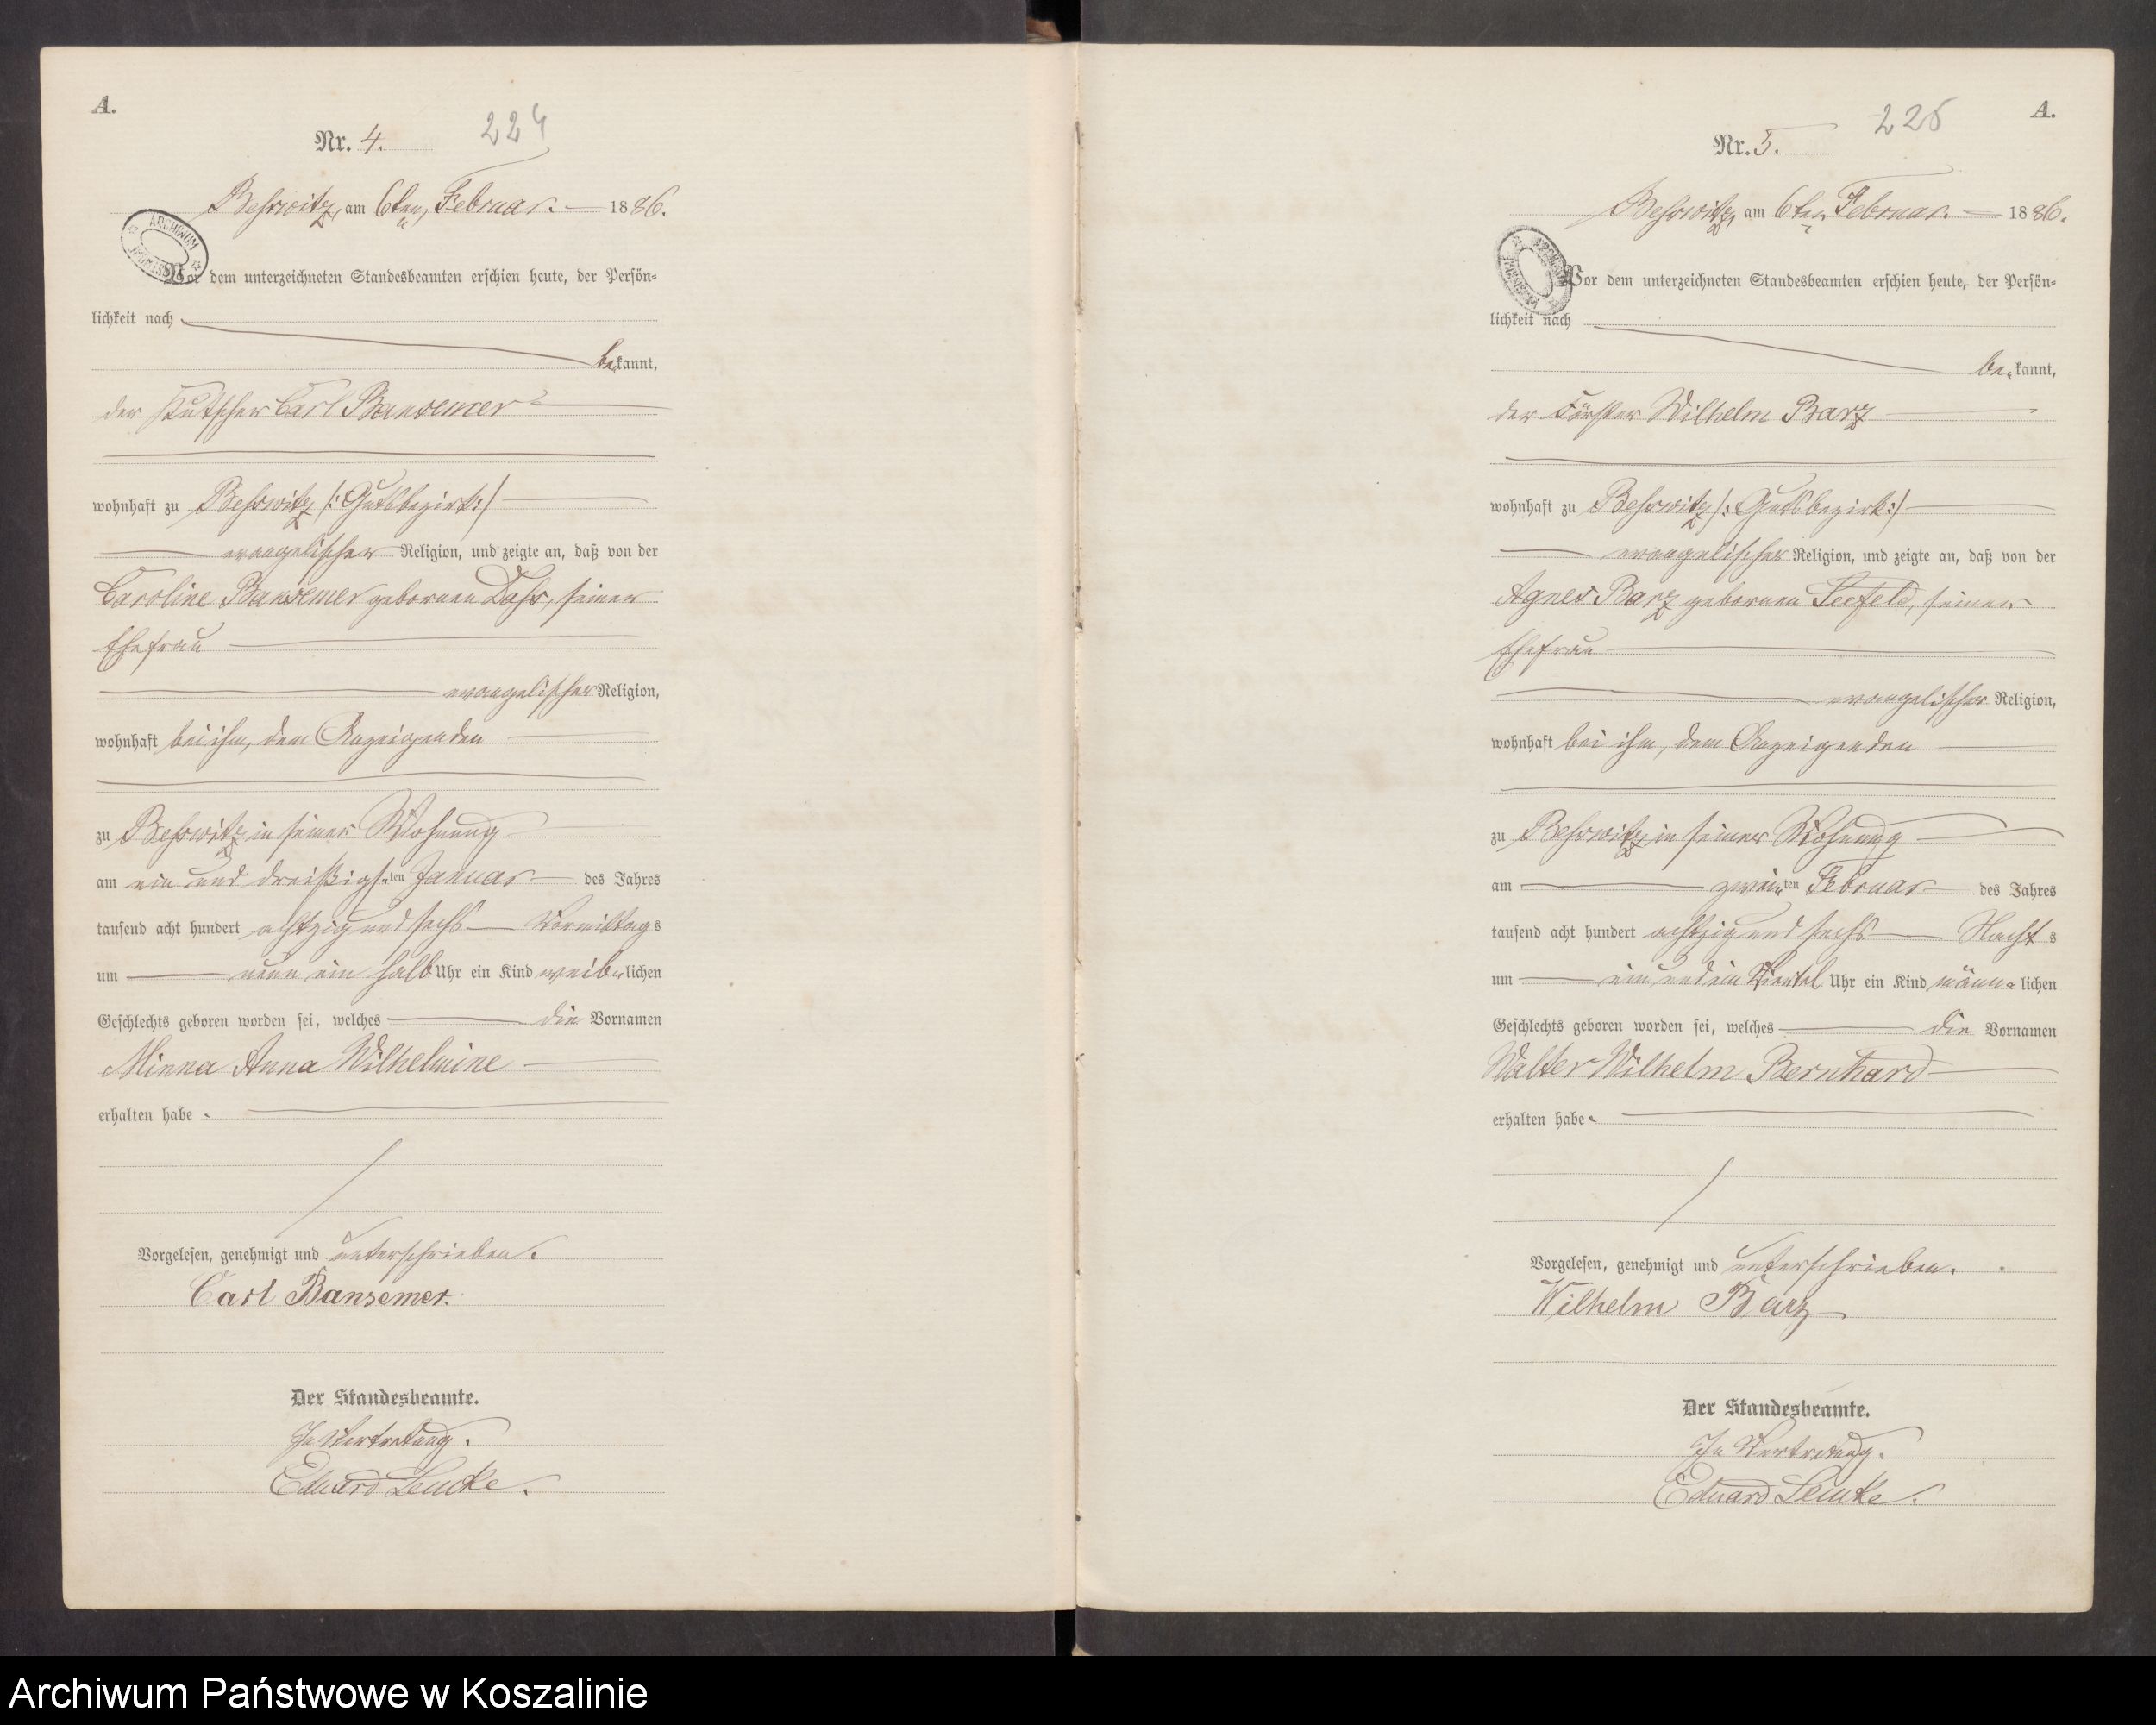 A.
Nr. 4. 224
Beßwitz, am 6ten Februar. 1886.
ARCHIWUM
Vor dem unterzeichneten Standesbeamten erschien heute, der Persön=
lichkeit nach
be kannt,
der Kutscher Carl Bansemer
wohnhaft zu Beßwitz /: Gutsbezirk :/
evangelischer Religion, und zeigte an, daß von der
Caroline Bansemer gebornen Daß, seiner
Ehefrau
evangelischer Religion,
wohnhaft bei ihm, dem Anzeigenden
zu Beßwitz in seiner Wohnung
am ein und dreißigsten Januar des Jahres
tausend acht hundert achtzig und sechs Vormittags
um neun ein halb Uhr ein Kind weib lichen
Geschlechts geboren worden sei, welches die Vornamen
Minna Anna Wilhelmine
erhalten habe.
Vorgelesen, genehmigt und unterschrieben.
Carl Bansemer.
Der Standesbeamte.
In Vertretung.
Eduard Lemke.
A.
Nr. 5. 225
Beßwitz, am 6ten Februar. 1886.
Vor dem unterzeichneten Standesbeamten erschien heute, der Persön=
lichkeit nach
be kannt,
der Förster Wilhelm Barz
wohnhaft zu Beßwitz /: Gutsbezirk :/
evangelischer Religion, und zeigte an, daß von der
Agnes Barz gebornen Seefeld, seiner
Ehefrau
evangelischer Religion,
wohnhaft bei ihm, dem Anzeigenden
zu Beßwitz in seiner Wohnung
am zweiten Februar des Jahres
tausend acht hundert achtzig und sechs Nachts
um ein und ein Viertel Uhr ein Kind männ lichen
Geschlechts geboren worden sei, welches die Vornamen
Walter Wilhelm Bernhard
erhalten habe.
Vorgelesen, genehmigt und unterschrieben.
Wilhelm Barz
Der Standesbeamte.
In Vertretung.
Eduard Lemke.
Archiwum Państwowe w Koszalinie